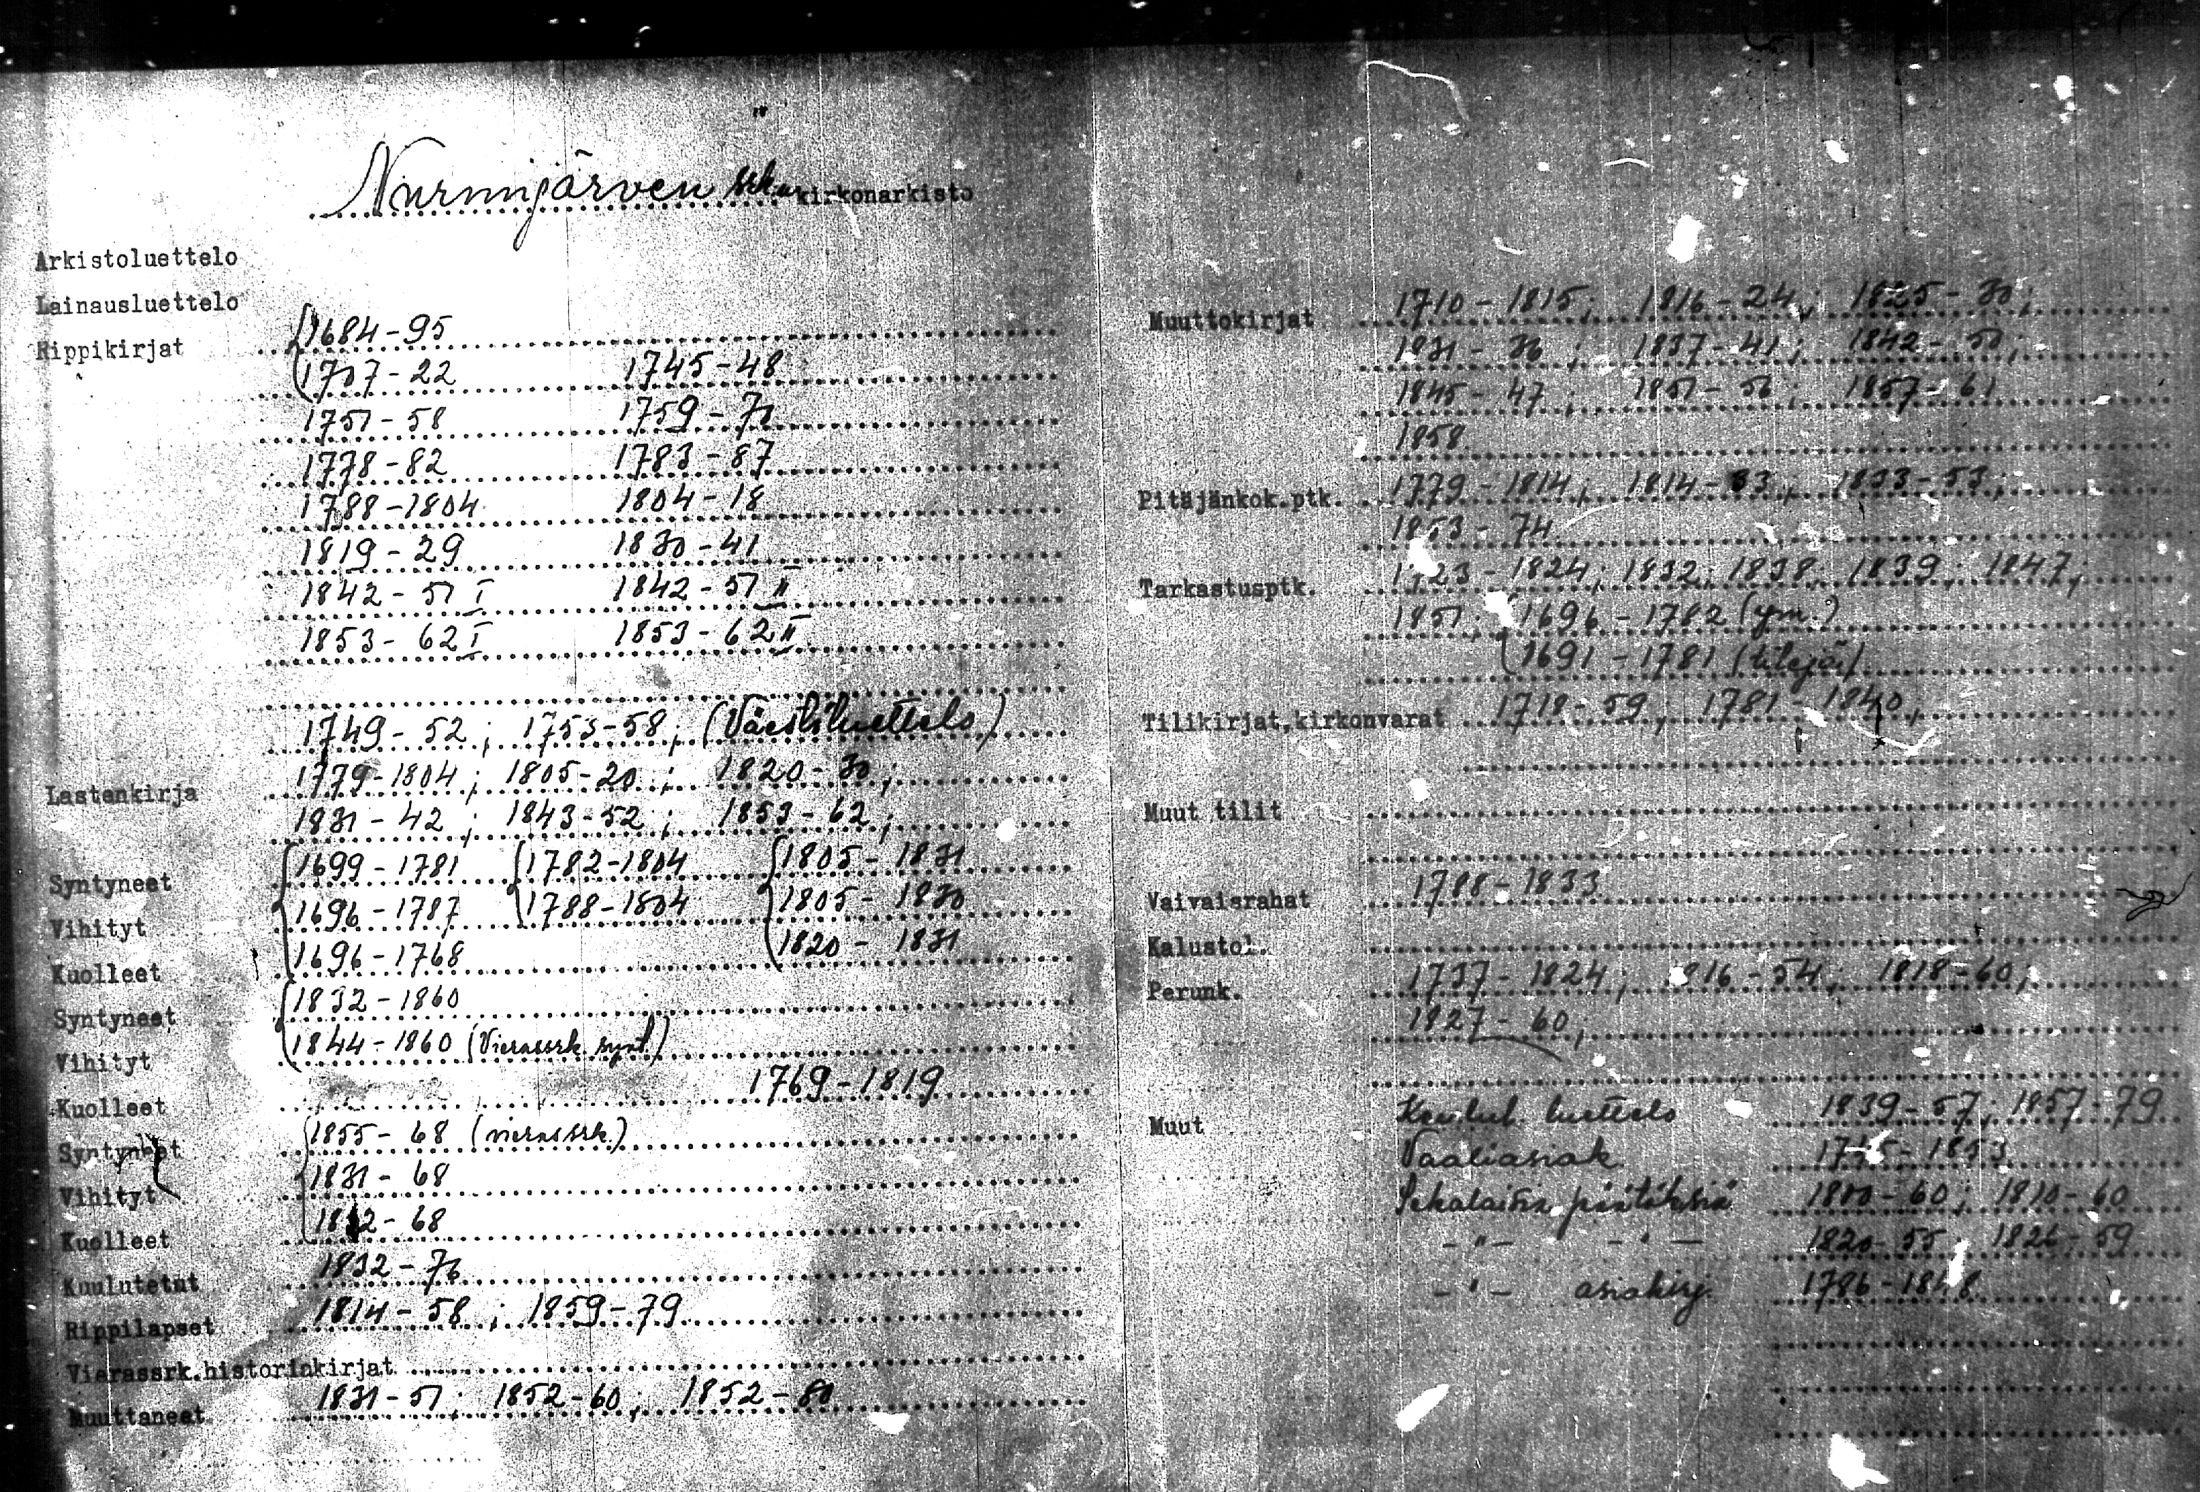 Nurmijärven srk:n kirkonarkisto
Arkistoluettelo
Lainausluettelo
Rippikirjat 1684-95
1707-22 1745-48
1751-58 1759-70
1778-82 1783-87
1788-1804 1804-18
1819-29 1830-41
1842-51 I 1842-51 II
1853-62 I 1853-62 II
1749-52; 1753-58; (Väestöluettelo)
Lastenkirja 1779-1804; 1805-20; 1820-30;
1831-42; 1843-52; 1853-62;
Syntyneet 1699-1781 1782-1804 1805-1831
Vihityt 1696-1787 1788-1804 1805-1830
Kuolleet 1696-1768 1820-1831
Syntyneet 1832-1860
Vihityt 1844-1860 (Vierassrk. synt.)
Kuolleet 1769-1819
Syntyneet 1855-68 (vierassrk.)
Vihityt 1831-68
Kuolleet -68
Kuulutetut 1832-76
Rippilapset 1814-58; 1859-79
Vierassrk.historiankirjat
Muuttaneet 1831-51; 1852-60; 1852-80
Muuttokirjat 1710-1815; 1816-24; 1825-30;
1831-36; 1837-41; 1842-50;
1845-47; 1851-56; 1857-61
1858
Pitäjänkok.ptk. 1779-1814; 1814-33; 1833-53;
1853-74
Tarkastusptk. 1723-1824; 1832; 1838; 1839; 1847;
1851; 1696-1782 (ym.)
1691-1781 (tilejä)
Tilikirjat,kirkonvarat 1718-59; 1781-1840;
Muut tilit
Vaivaisrahat 1788-1833
Kalustol.
Perunk. 1737-1824; 1816-54; 1818-60;
1827-60;
Muut luettelo 1839-57; 1857-79
Vaaliasiak.
Sekalaisia päätöksiä 1800-60; 1810-60
-"- -"- 1820-55 1826-59
-"- asiakirj. 1786-1848